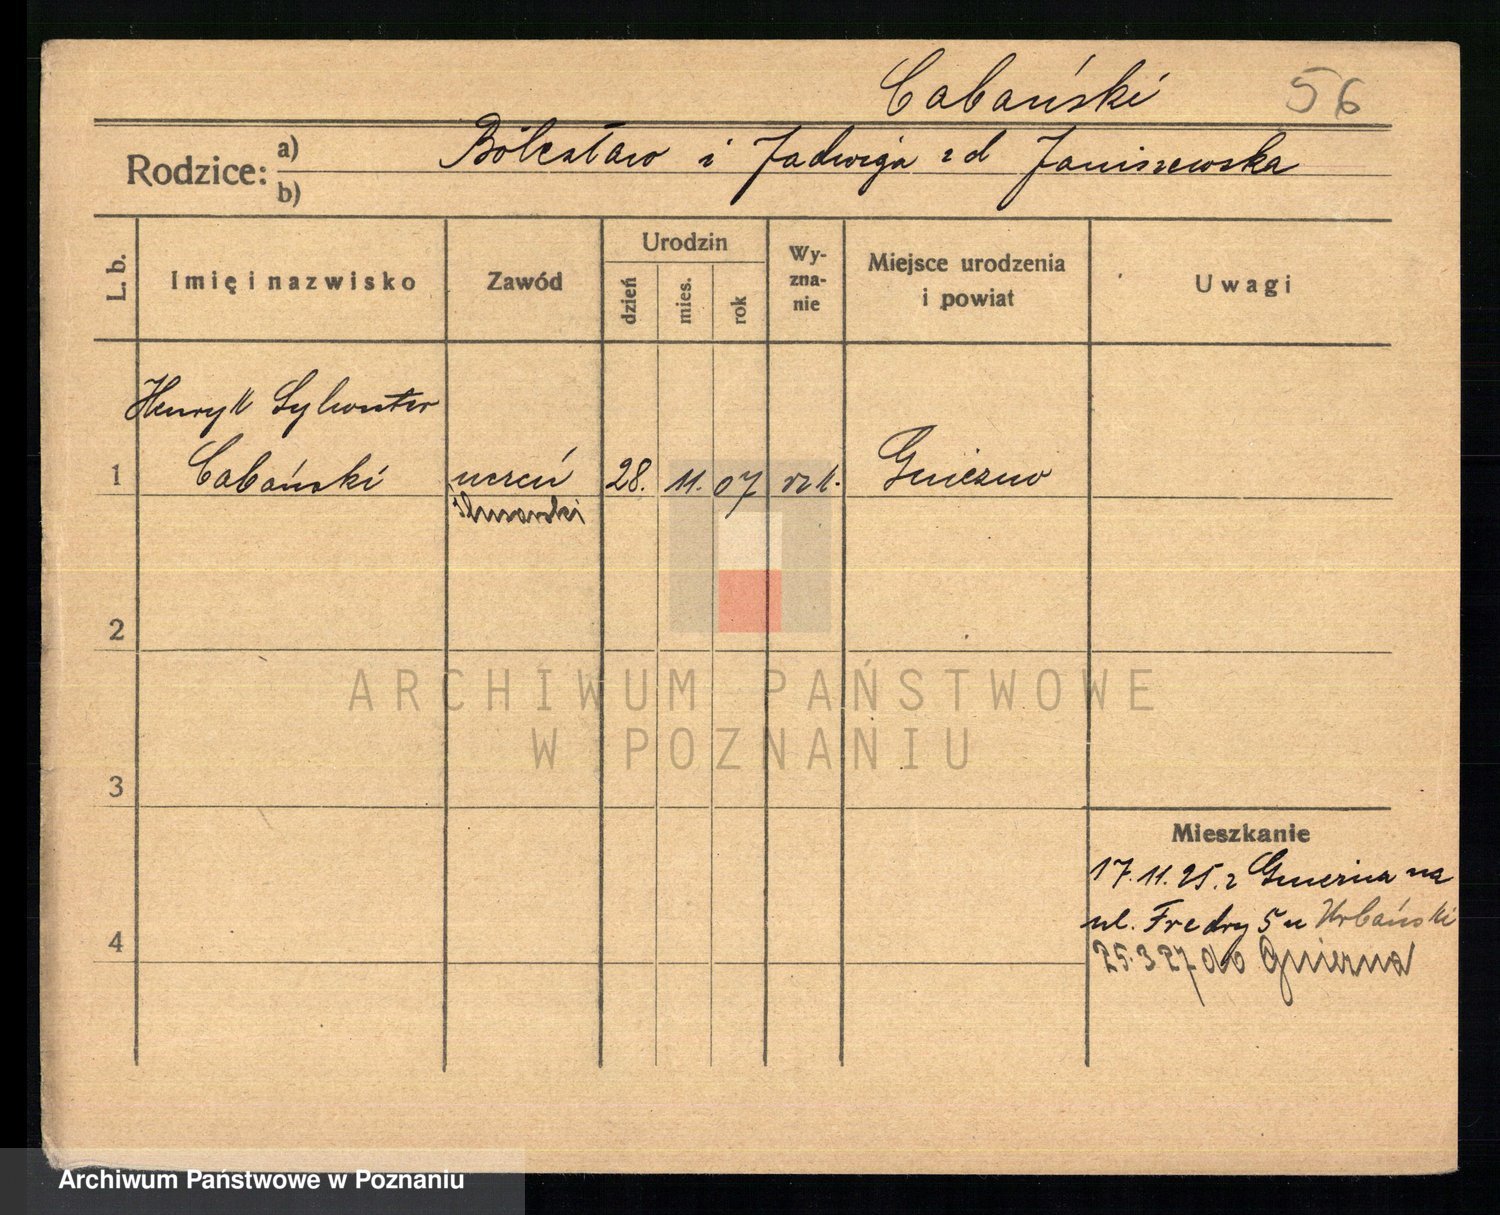 Cabański 56
Rodzice: a) b) Bolesław i Jadwiga zd Janiszewska
L. b.
Imię i nazwisko
Zawód
Urodzin
dzień
mies.
rok
Wy-
zna-
nie
Miejsce urodzenia
i powiat
Uwagi
Henryk Sylwester
1 Cabański uczeń 28. 11. 07 rzk. Gniezno
ślusarski
2
ARCHIWUM PAŃSTWOWE
W POZNANIU
3
Mieszkanie
17.11.25. z Gniezna na
ul. Fredry 5 u Urbański
4
25.3 27 do Gniezna
Archiwum Państwowe w Poznaniu